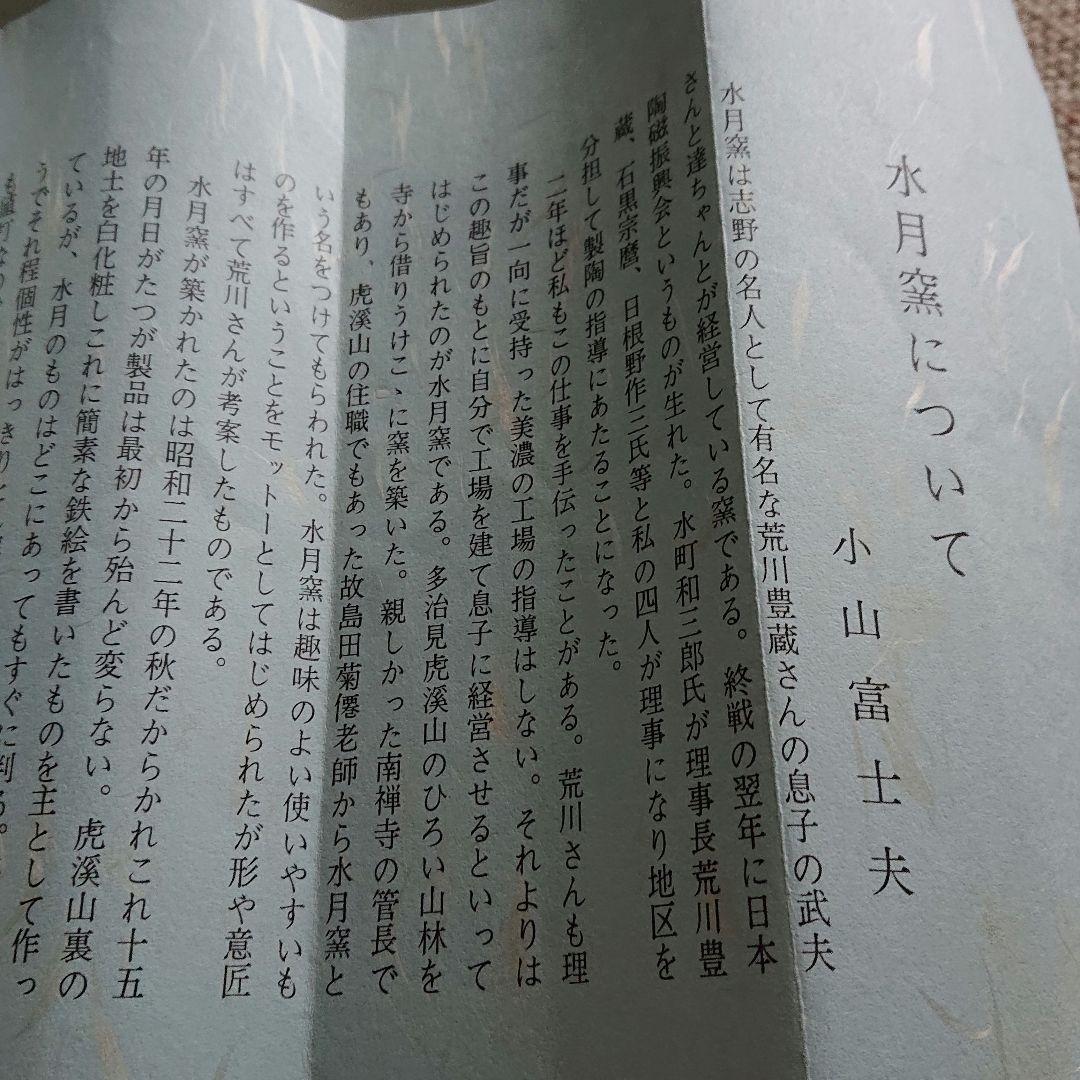 水月窯について
小山富士夫
水月窯は志野の名人として有名な荒川豊蔵さんの息子の武夫
さんと達ちゃんとが経営している窯である。終戦の翌年に日本
陶磁振興会というものが生れた。水町和三郎氏が理事長荒川豊
蔵、石黒宗麿、日根野作三氏等と私の四人が理事になり地区を
分担して製陶の指導にあたることになった。
二年ほど私もこの仕事を手伝ったことがある。荒川さんも理
事だが一向に受持った美濃の工場の指導はしない。それよりは
この趣旨のもとに自分で工場を建て息子に経営させるといって
はじめられたのが水月窯である。多治見虎溪山のひろい山林を
寺から借りうけこゝに窯を築いた。親しかった南禅寺の管長で
もあり、虎溪山の住職でもあった故島田菊僊老師から水月窯と
いう名をつけてもらわれた。水月窯は趣味のよい使いやすいも
のを作るということをモットーとしてはじめられたが形や意匠
はすべて荒川さんが考案したものである。
水月窯が築かれたのは昭和二十二年の秋だからかれこれ十五
年の月日がたつが製品は最初から殆んど変らない。虎溪山裏の
地土を白化粧しこれに簡素な鉄絵を書いたものを主として作っ
ているが、水月のものはどこにあってもすぐに判る。
うでそれ程個性がはっきりと